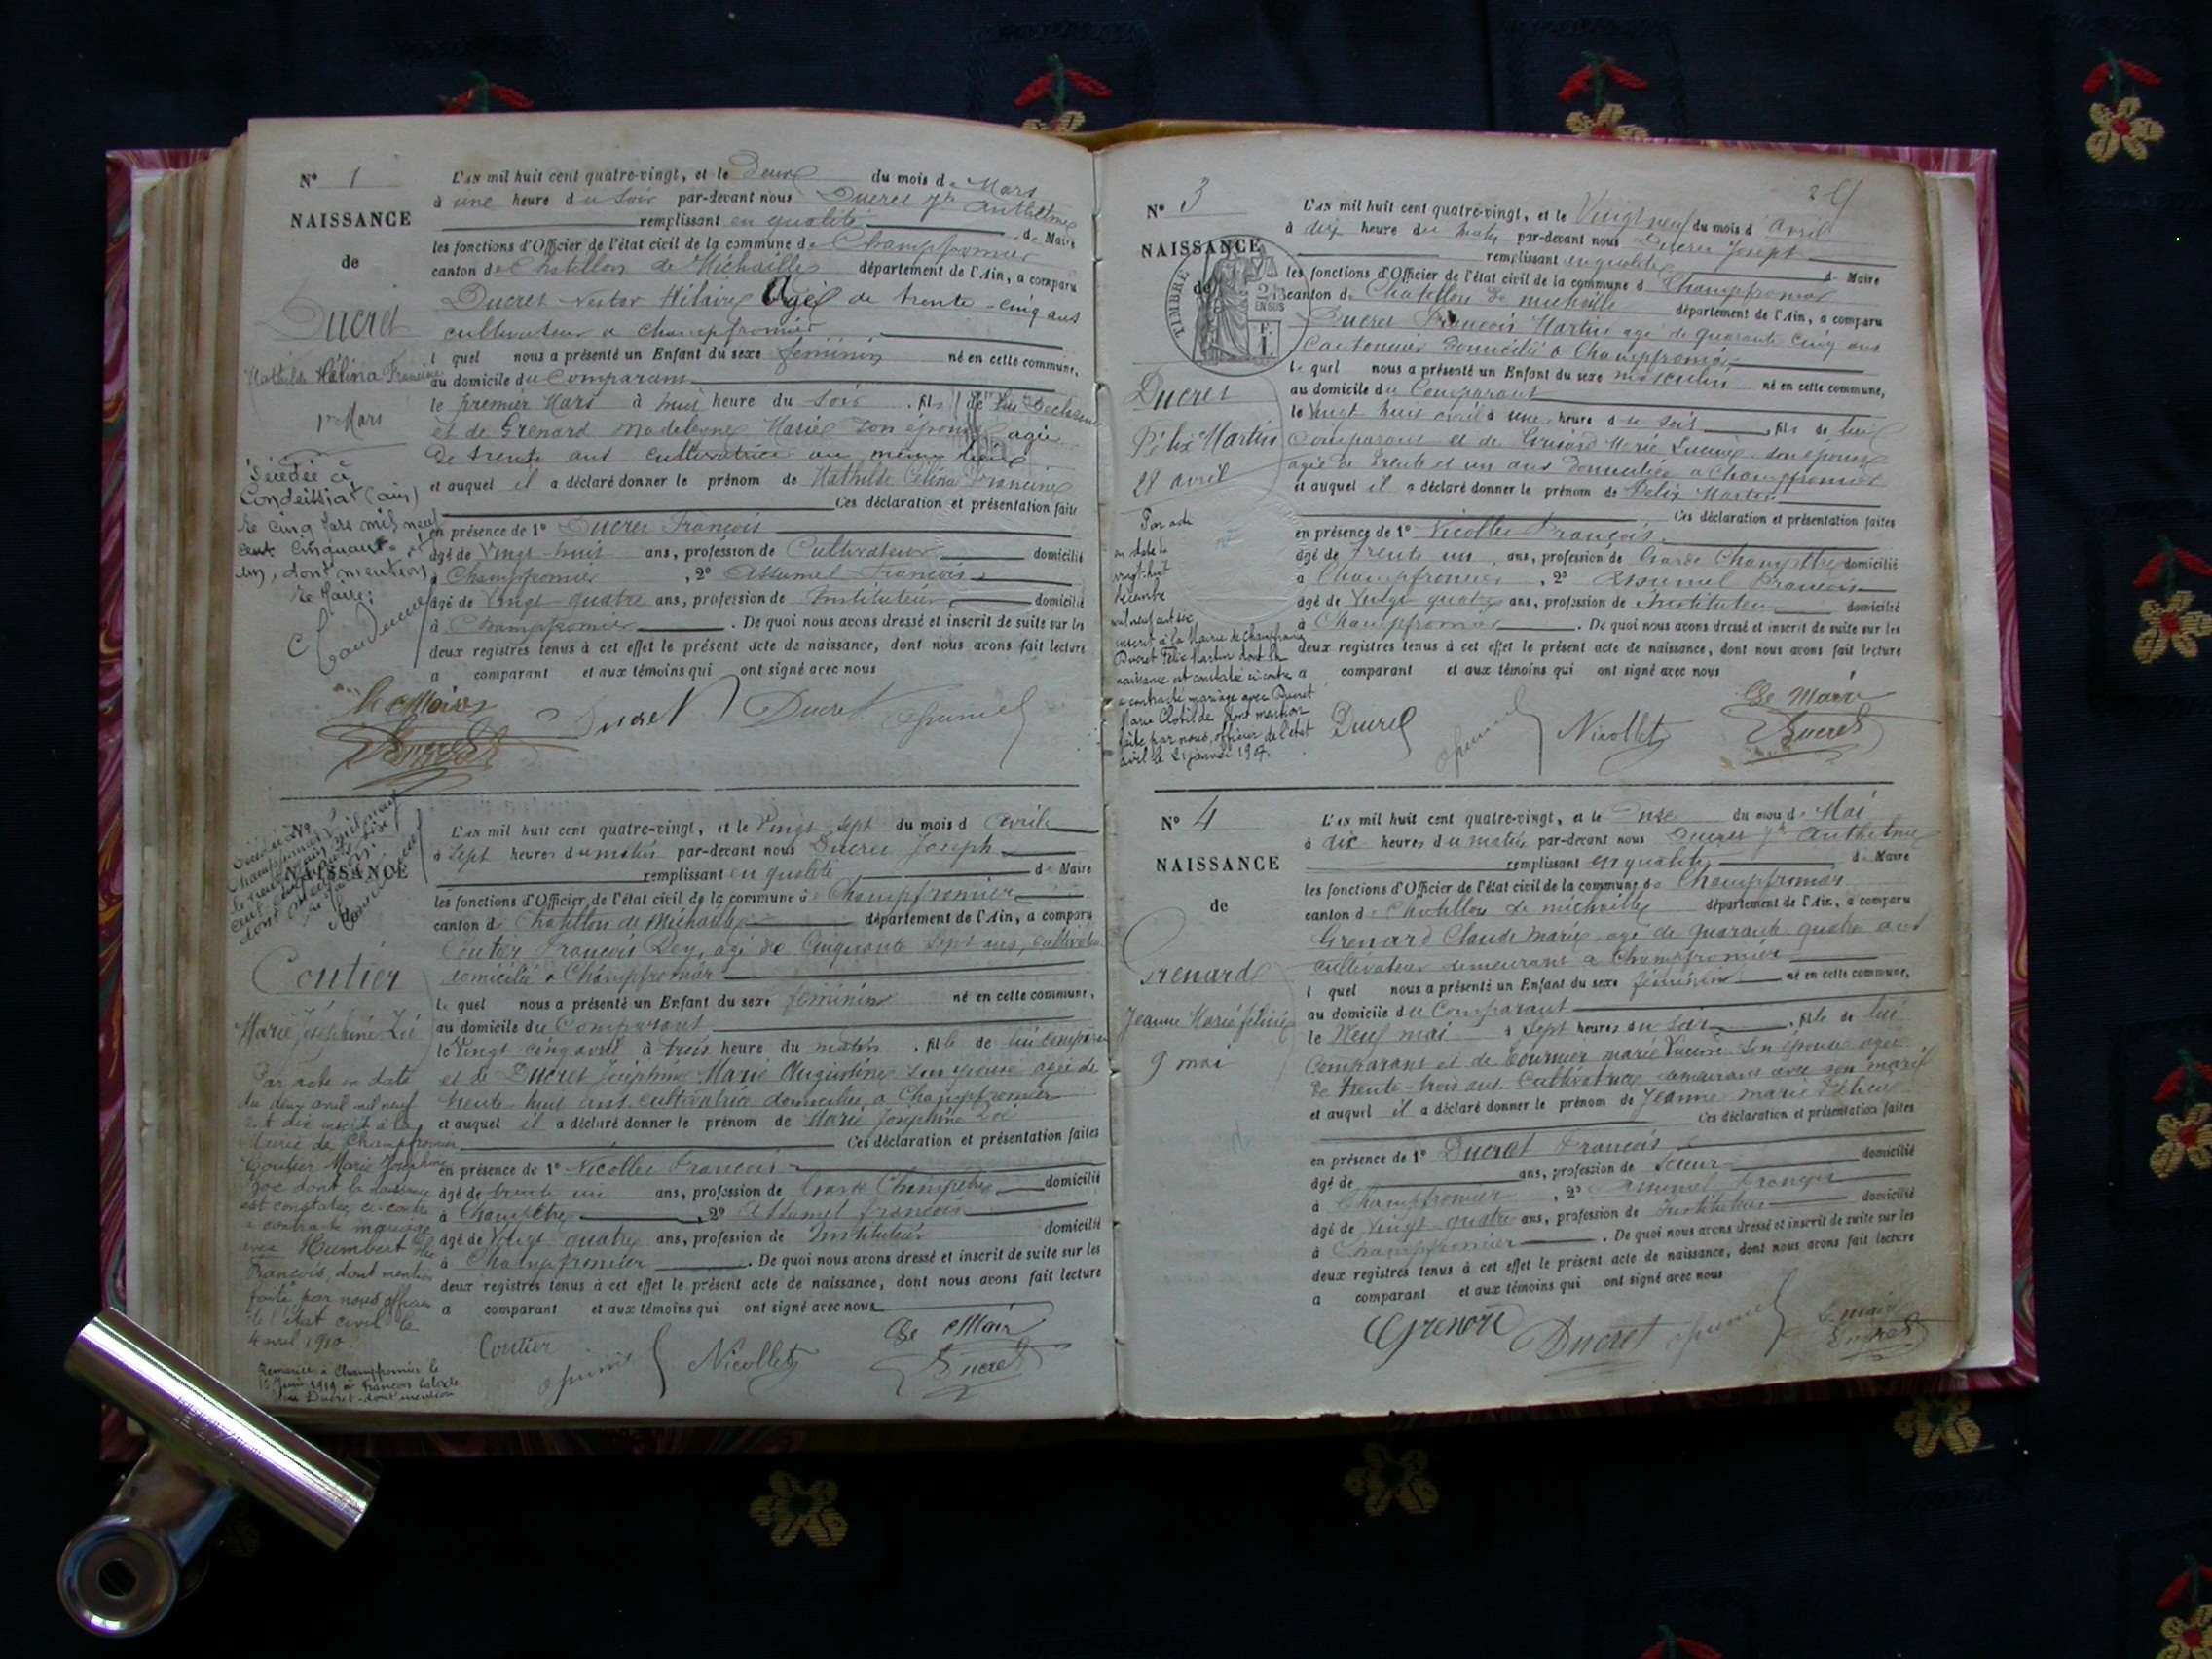 N° 1
NAISSANCE
de
Ducret
Mathilde Célina Francine
1er Mars
Décédée à
Condeissiat (ain)
le cinq mars mil neuf
cent cinquante
un, dont mention
Le Maire:
L'AN mil huit cent quatre-vingt, et le Deux du mois de Mars
à une heure du Soir par-devant nous Ducret Jh Anthelme
remplissant en qualité de Maire
les fonctions d'Officier de l'état civil de la commune de Champfromier
canton de Chatillon de Michaille département de l'Ain, a comparu
Ducret Nestor Hilaire Agé de trente-cinq ans
cultivateur a Champfromier
l quel nous a présenté un Enfant du sexe féminin né en cette commune,
au domicile du Comparant
le premier Mars à huit heure du Soir , fil de lui
et de Grenard Madeleine Marie son épouse agée
de trente ans cultivatrice au même lieu
et auquel il a déclaré donner le prénom de Mathilde Célina Francine
Ces déclaration et présentation faite
en présence de 1° Ducret François
âgé de Vingt-huit ans, profession de Cultivateur domicilié
à Champfromier , 2° Assumel François
âgé de Vingt-quatre ans, profession de Instituteur domicilié
à Champfromier . De quoi nous avons dressé et inscrit de suite sur les
deux registres tenus à cet effet le présent acte de naissance, dont nous avons fait lecture
a comparant et aux témoins qui ont signé avec nous
Le Maire
Ducret Ducret Ducret
N°
NAISSANCE
Coutier
Marie Joséphine Zoé
Par acte en date
du deux avril mil neuf
cent dix inscrit à la
Mairie de Champfromier
Coutier Marie Joséphine
Zoé dont la naissance
est constatée ci-contre
a contracté mariage
avec Humbert
François, dont mention
faite par nous officier
de l'état civil le
4 avril 1910
Remariée à Champfromier le
1919 à François
Ducret - dont mention
L'AN mil huit cent quatre-vingt, et le Vingt Sept du mois d avril
à Sept heures du matin par-devant nous Ducret Joseph
remplissant en qualité de Maire
les fonctions d'Officier de l'état civil de la commune de Champfromier
canton de Chatillon de Michaille département de l'Ain, a comparu
Coutier François agé de Cinquante Sept ans, cultivateur
domicilié à Champfromier
le quel nous a présenté un Enfant du sexe féminin né en cette commune,
au domicile du Comparant
le Vingt cinq avril à trois heure du matin , fille de lui comparant
et de Ducret Joséphine Marie Augustine son épouse agée de
trente huit ans cultivatrice domiciliée a Champfromier
et auquel il a déclaré donner le prénom de Marie Joséphine Zoé
Ces déclaration et présentation faites
en présence de 1° Nicollet François
âgé de trente un ans, profession de Garde Champêtre domicilié
à Champêtre , 2° Assumel François
âgé de Vingt quatre ans, profession de Instituteur domicilié
à Champfromier . De quoi nous avons dressé et inscrit de suite sur les
deux registres tenus à cet effet le présent acte de naissance, dont nous avons fait lecture
a comparant et aux témoins qui ont signé avec nous
Coutier Nicollet Le Maire
Ducret
N° 3
NAISSANCE
de
TIMBRE
Ducret
Félix Martin
28 avril
Par acte
en date du
vingt-huit
décembre
mil neuf cent six
inscrit à la Mairie de Champfromier
Ducret Félix Martin dont la
naissance est constatée ci-contre a
contracté mariage avec Ducret
Marie Clotilde, dont mention
faite par nous, officier de l'état
civil le 2 janvier 1907.
L'AN mil huit cent quatre-vingt, et le Vingt neuf du mois d avril
à dix heure du matin par-devant nous Ducret Joseph
remplissant en qualité de Maire
les fonctions d'Officier de l'état civil de la commune d Champfromier
canton de Chatillon de Michaille département de l'Ain, a comparu
Ducret François Martin agé de quarante cinq ans
Cantonnier domicilié à Champfromier
le quel nous a présenté un Enfant du sexe masculin né en cette commune,
au domicile du Comparant
le Vingt huit avril à une heure du soir , fils de lui
comparant et de Grenard Marie son épouse
agée de trente et un ans domiciliée a Champfromier
et auquel il a déclaré donner le prénom de Félix Martin
Ces déclaration et présentation faites
en présence de 1° Nicollet François
âgé de trente un ans, profession de Garde Champêtre domicilié
à Champfromier , 2° Assumel François
âgé de Vingt quatre ans, profession de Instituteur domicilié
à Champfromier . De quoi nous avons dressé et inscrit de suite sur les
deux registres tenus à cet effet le présent acte de naissance, dont nous avons fait lecture
a comparant et aux témoins qui ont signé avec nous
Ducret Nicollet Le Maire
Ducret
N° 4
NAISSANCE
de
Grenard
Jeanne Marie félicie
9 mai
L'AN mil huit cent quatre-vingt, et le Onze du mois de Mai
à dix heures du matin par-devant nous Ducret Jh Anthelme
remplissant en qualité de Maire
les fonctions d'Officier de l'état civil de la commune de Champfromier
canton de Chatillon de Michaille département de l'Ain, a comparu
Grenard Claude Marie agé de quarante quatre ans
cultivateur demeurant a Champfromier
l quel nous a présenté un Enfant du sexe féminin né en cette commune,
au domicile du Comparant
le Neuf mai à Sept heures du soir , fille de lui
comparant et de Tournier marie son épouse agée
de trente-trois ans Cultivatrice demeurant avec son mari
et auquel il a déclaré donner le prénom de Jeanne marie Félicie
Ces déclaration et présentation faites
en présence de 1° Ducret François
âgé de ans, profession de domicilié
à Champfromier , 2° Assumel François
âgé de Vingt quatre ans, profession de Instituteur domicilié
à Champfromier . De quoi nous avons dressé et inscrit de suite sur les
deux registres tenus à cet effet le présent acte de naissance, dont nous avons fait lecture
a comparant et aux témoins qui ont signé avec nous
Grenard Ducret Le maire
Ducret